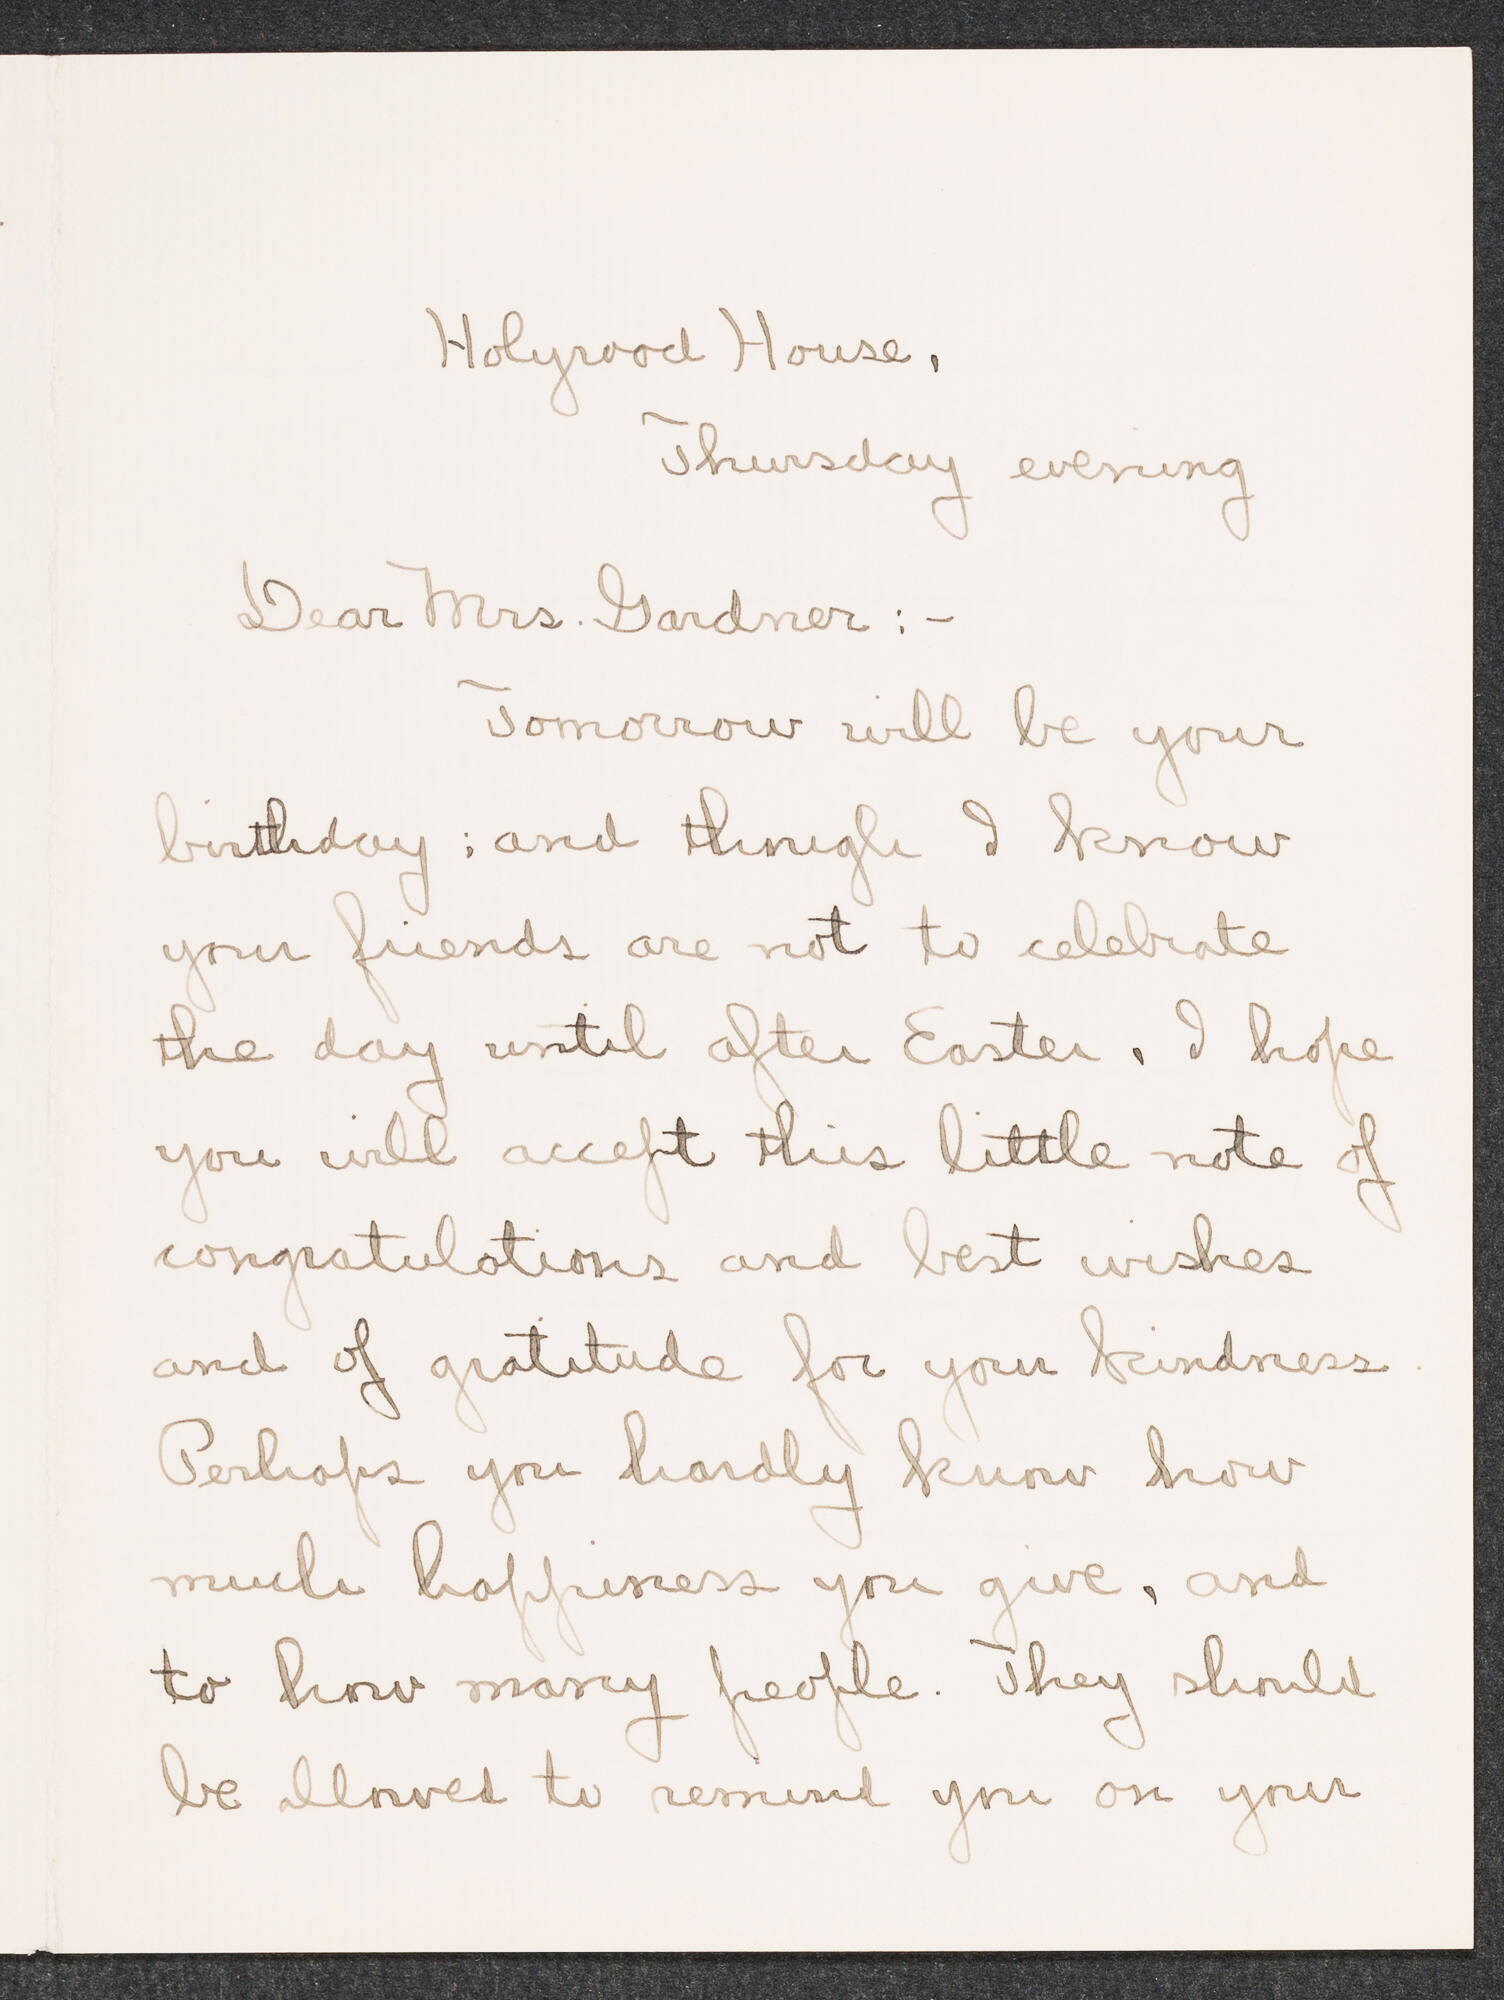 Holyrood House,
Thursday evening
Dear Mrs. Gardner:-
Tomorrow will be your
birthday; and though I know
your friends are not to celebrate
the day until after Easter, I hope
you will accept this little note of
congratulations and best wishes
and of gratitude for your kindness.
Perhaps you hardly know how
much happiness you give, and
to how many people. They should
be allowed to remind you on your